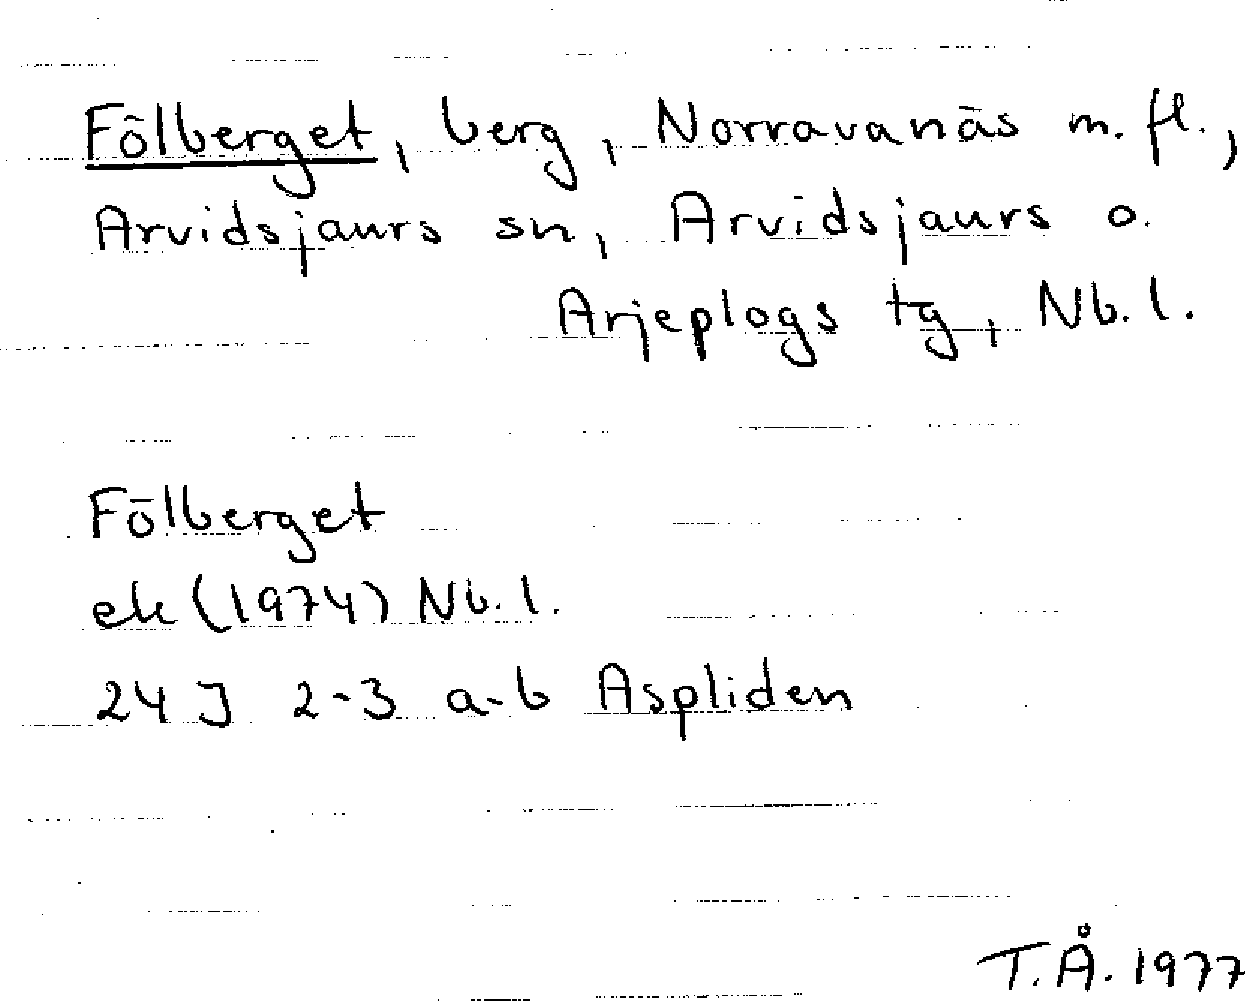 Fölberget, berg, Norravanäs m. fl.,
Arvidsjaurs sn, Arvidsjaurs o.
Arjeplogs tg, Nb. l.
Fölberget
ek (1974) Nb. l.
24 J 2-3 a-b Aspliden
T.Å. 1977